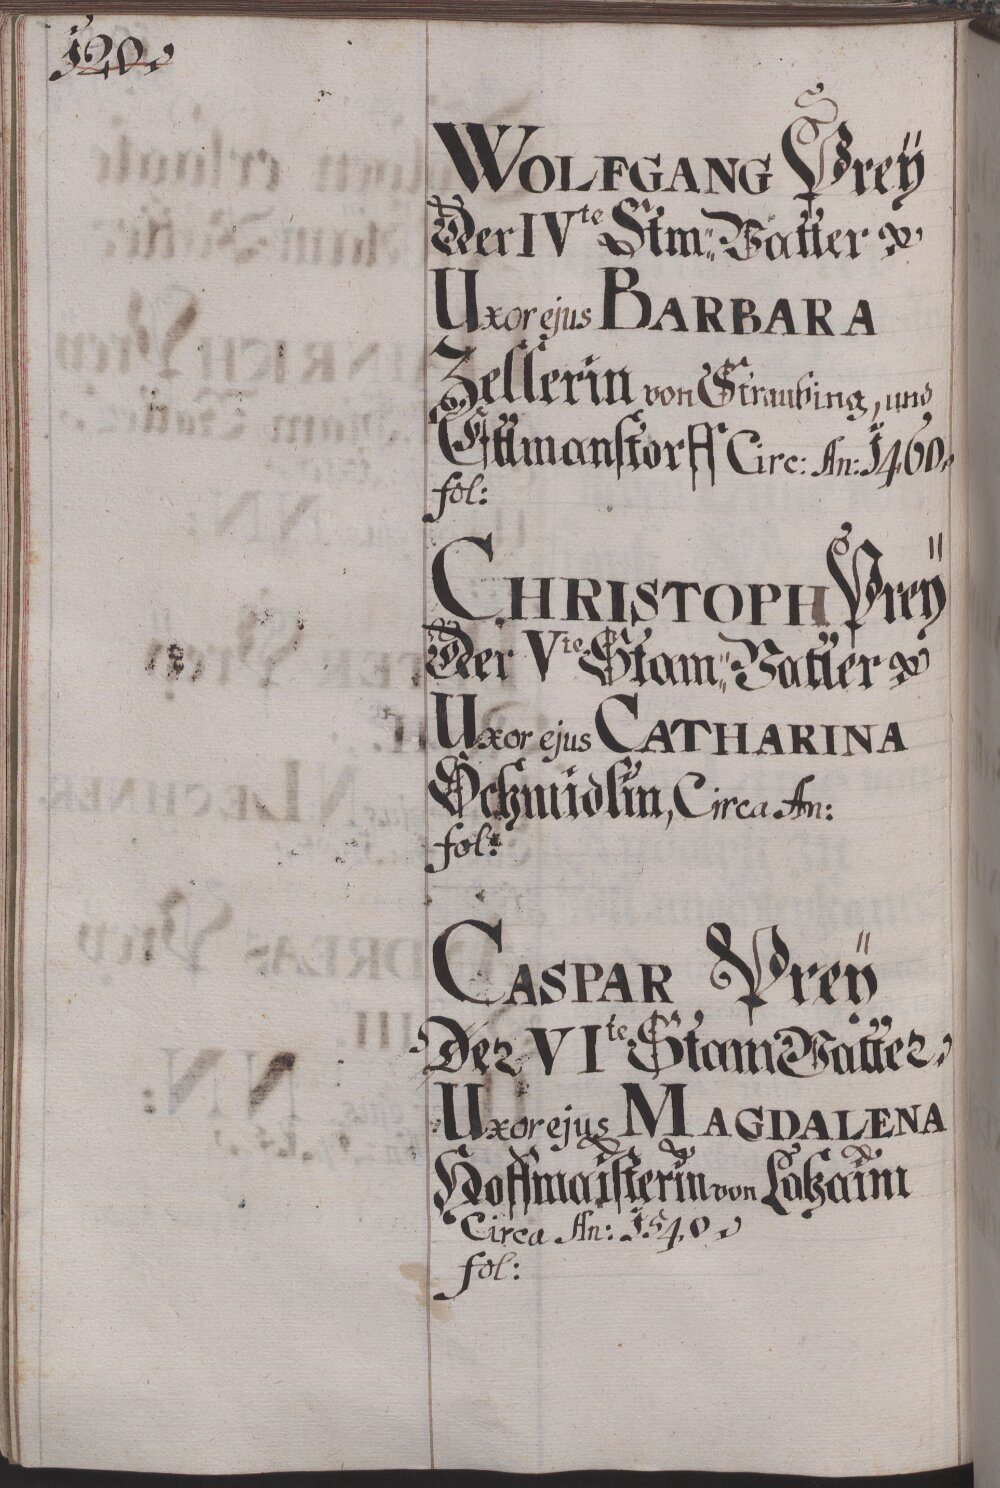 120.
WOLFGANG Preÿ
Der IVte Stm: Vatter
Uxor ejus BARBARA
Zellerin von Straubing, und
Ettmanstorff Circ: An: 1460.
fol:
CHRISTOPH Preÿ
Der Vte Stam: Vatter
Uxor ejus CATHARINA
Schmidlin, Circa An:
fol:
CASPAR Preÿ
Der VIte Stam Vatter.
Uxor ejus MAGDALENA
Hoffmaisterin von
Circa An: 1540.
fol: